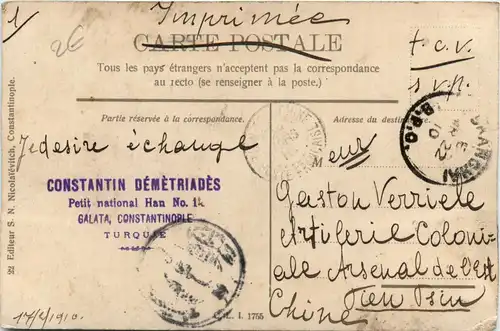 1/
Imprimée
2€
CARTE POSTALE
t.c.v.
s.v.p.
Tous les pays étrangers n'acceptent pas la correspondance
au recto (se renseigner à la poste.)
Partie réservée à la correspondance.
Adresse du destinataire
SHANGHAI
B.P.O.
Je desire échange
Meur
CONSTANTIN DÉMÈTRIADÈS
Petit national Han No. 14
GALATA, CONSTANTINOPLE
TURQUIE
Gaston Verriele
Artilerie Coloni-
ale Arsenal de l'Est
Tien Tsin
Chine
22 Editeur S. N. Nicolaïévitch, Constantinople.
I. 1755
17/2/1910.